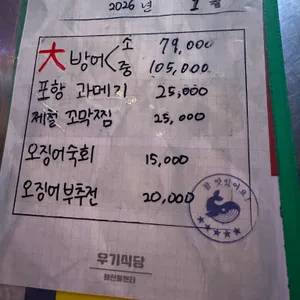 2026 년 1 월
大 방어 < 소 79,000
중 105,000
포항 과메기 25,000
제철 꼬막찜 25,000
오징어숙회 15,000
오징어부추전 20,000
참 맛있어요!
우기식당